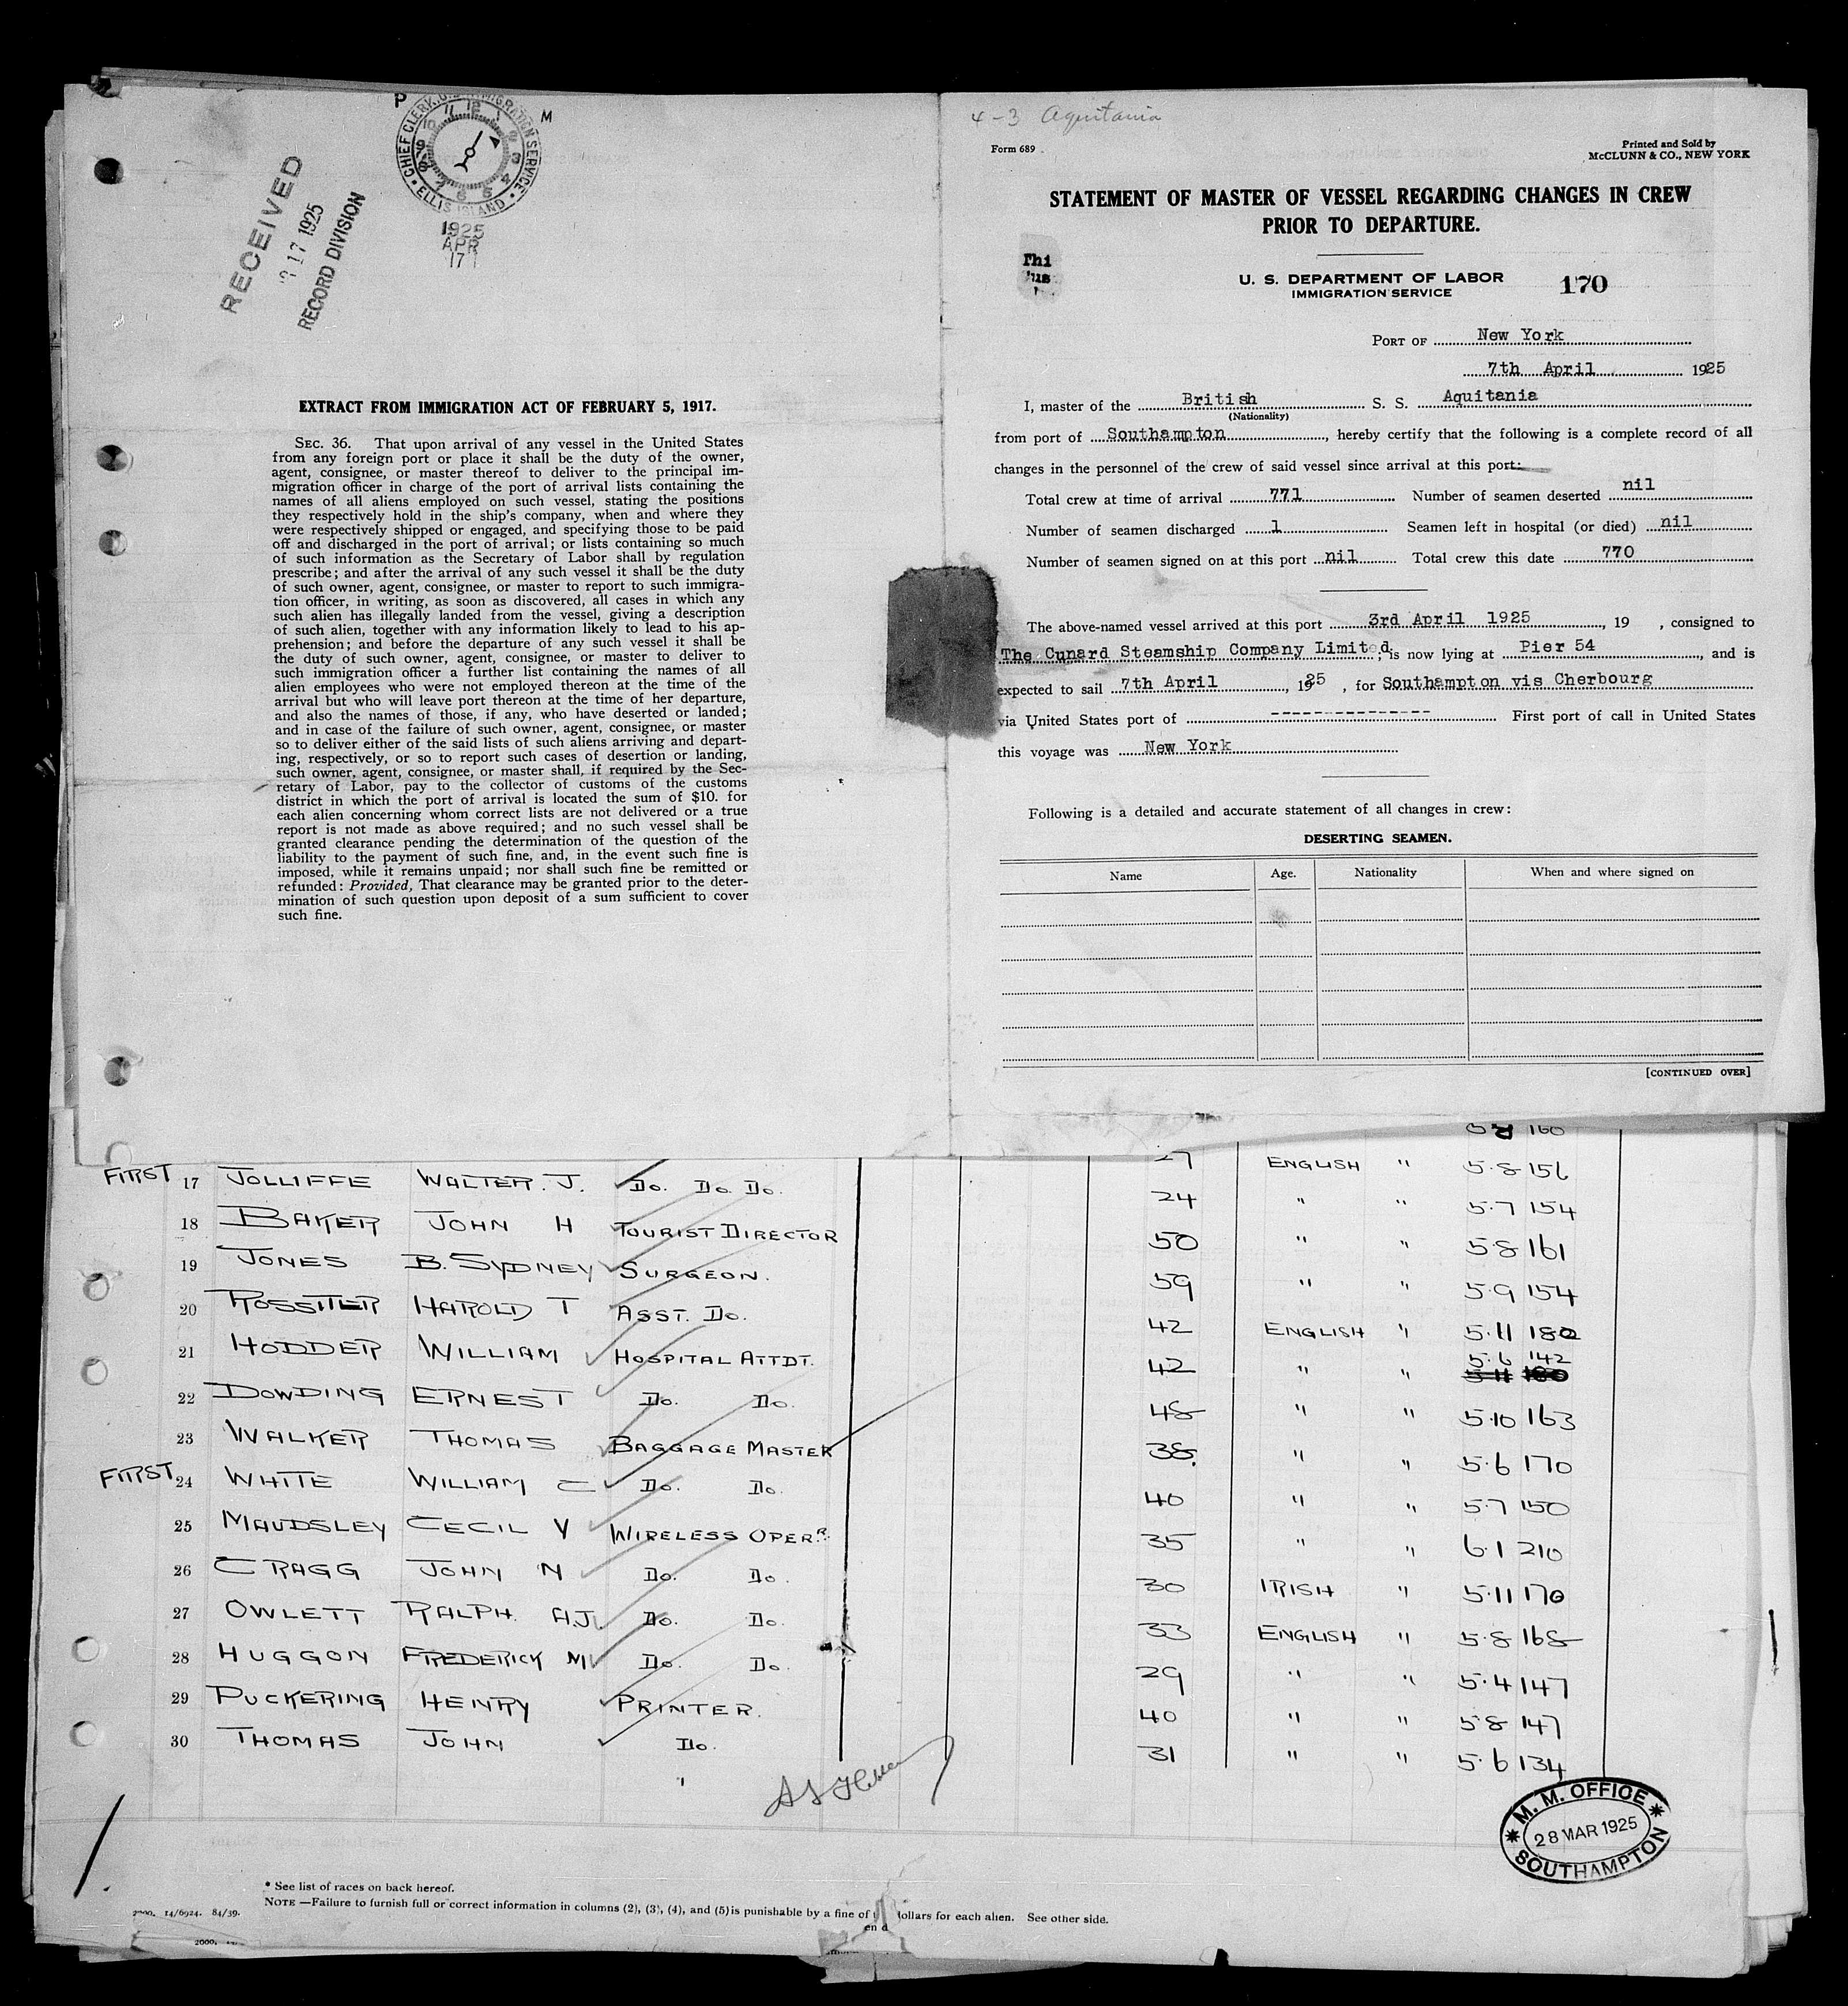 P M
CHIEF CLERK, U.S. IMMIGRATION SERVICE
ELLIS ISLAND
1925
APR
17
RECEIVED
17 1925
RECORD DIVISION
EXTRACT FROM IMMIGRATION ACT OF FEBRUARY 5, 1917.
SEC. 36. That upon arrival of any vessel in the United States
from any foreign port or place it shall be the duty of the owner,
agent, consignee, or master thereof to deliver to the principal im-
migration officer in charge of the port of arrival lists containing the
names of all aliens employed on such vessel, stating the positions
they respectively hold in the ship's company, when and where they
were respectively shipped or engaged, and specifying those to be paid
off and discharged in the port of arrival; or lists containing so much
of such information as the Secretary of Labor shall by regulation
prescribe; and after the arrival of any such vessel it shall be the duty
of such owner, agent, consignee, or master to report to such immigra-
tion officer, in writing, as soon as discovered, all cases in which any
such alien has illegally landed from the vessel, giving a description
of such alien, together with any information likely to lead to his ap-
prehension; and before the departure of any such vessel it shall be
the duty of such owner, agent, consignee, or master to deliver to
such immigration officer a further list containing the names of all
alien employees who were not employed thereon at the time of the
arrival but who will leave port thereon at the time of her departure,
and also the names of those, if any, who have deserted or landed;
and in case of the failure of such owner, agent, consignee, or master
so to deliver either of the said lists of such aliens arriving and depart-
ing, respectively, or so to report such cases of desertion or landing,
such owner, agent, consignee, or master shall, if required by the Sec-
retary of Labor, pay to the collector of customs of the customs
district in which the port of arrival is located the sum of $10. for
each alien concerning whom correct lists are not delivered or a true
report is not made as above required; and no such vessel shall be
granted clearance pending the determination of the question of the
liability to the payment of such fine, and, in the event such fine is
imposed, while it remains unpaid; nor shall such fine be remitted or
refunded: Provided, That clearance may be granted prior to the deter-
mination of such question upon deposit of a sum sufficient to cover
such fine.
4-3 Aquitania
Form 689
Printed and Sold by
McCLUNN & CO., NEW YORK
STATEMENT OF MASTER OF VESSEL REGARDING CHANGES IN CREW
PRIOR TO DEPARTURE.
U. S. DEPARTMENT OF LABOR
IMMIGRATION SERVICE
170
PORT OF New York
7th April 1925
I, master of the British S. S. Aquitania
(Nationality)
from port of Southampton, hereby certify that the following is a complete record of all
changes in the personnel of the crew of said vessel since arrival at this port:
Total crew at time of arrival 771 Number of seamen deserted nil
Number of seamen discharged 1 Seamen left in hospital (or died) nil
Number of seamen signed on at this port nil Total crew this date 770
The above-named vessel arrived at this port 3rd April 1925, 19 , consigned to
The Cunard Steamship Company Limited, is now lying at Pier 54, and is
expected to sail 7th April, 1925, for Southampton vis Cherbourg
via United States port of --------------- First port of call in United States
this voyage was New York
Following is a detailed and accurate statement of all changes in crew:
DESERTING SEAMEN.
Name Age. Nationality When and where signed on
[CONTINUED OVER]
160
27 ENGLISH " 5.8 156
FIRST 17 JOLLIFFE WALTER. J. Do. Do. Do. 24 " " 5.7 154
18 BAKER JOHN H TOURIST DIRECTOR 50 " " 5.8 161
19 JONES B. SYDNEY SURGEON. 59 " " 5.9 154
20 ROSSITER HAROLD T ASST. Do. 42 ENGLISH " 5.11 180
21 HODDER WILLIAM HOSPITAL ATTDT. 42 " " 5.6 142
5.11 180
22 DOWDING ERNEST Do. Do. 48 " " 5.10 163
23 WALKER THOMAS BAGGAGE MASTER 38. " " 5.6 170
FIRST 24 WHITE WILLIAM C Do. Do. 40 " " 5.7 150
25 MAUDSLEY CECIL V WIRELESS OPERR. 35 " " 6.1 210
26 CRAGG JOHN N Do. Do. 30 IRISH " 5.11 170
27 OWLETT RALPH. A.J. Do. Do. 33 ENGLISH " 5.8 168
28 HUGGON FREDERICK M Do. Do. 29 " " 5.4 147
29 PUCKERING HENRY PRINTER. 40 " " 5.8 147
30 THOMAS JOHN Do. 31 " " 5.6 134
M. M. OFFICE
28 MAR 1925
SOUTHAMPTON
* See list of races on back hereof.
NOTE —Failure to furnish full or correct information in columns (2), (3), (4), and (5) is punishable by a fine of dollars for each alien. See other side.
14/6924. 84/39.
2000.